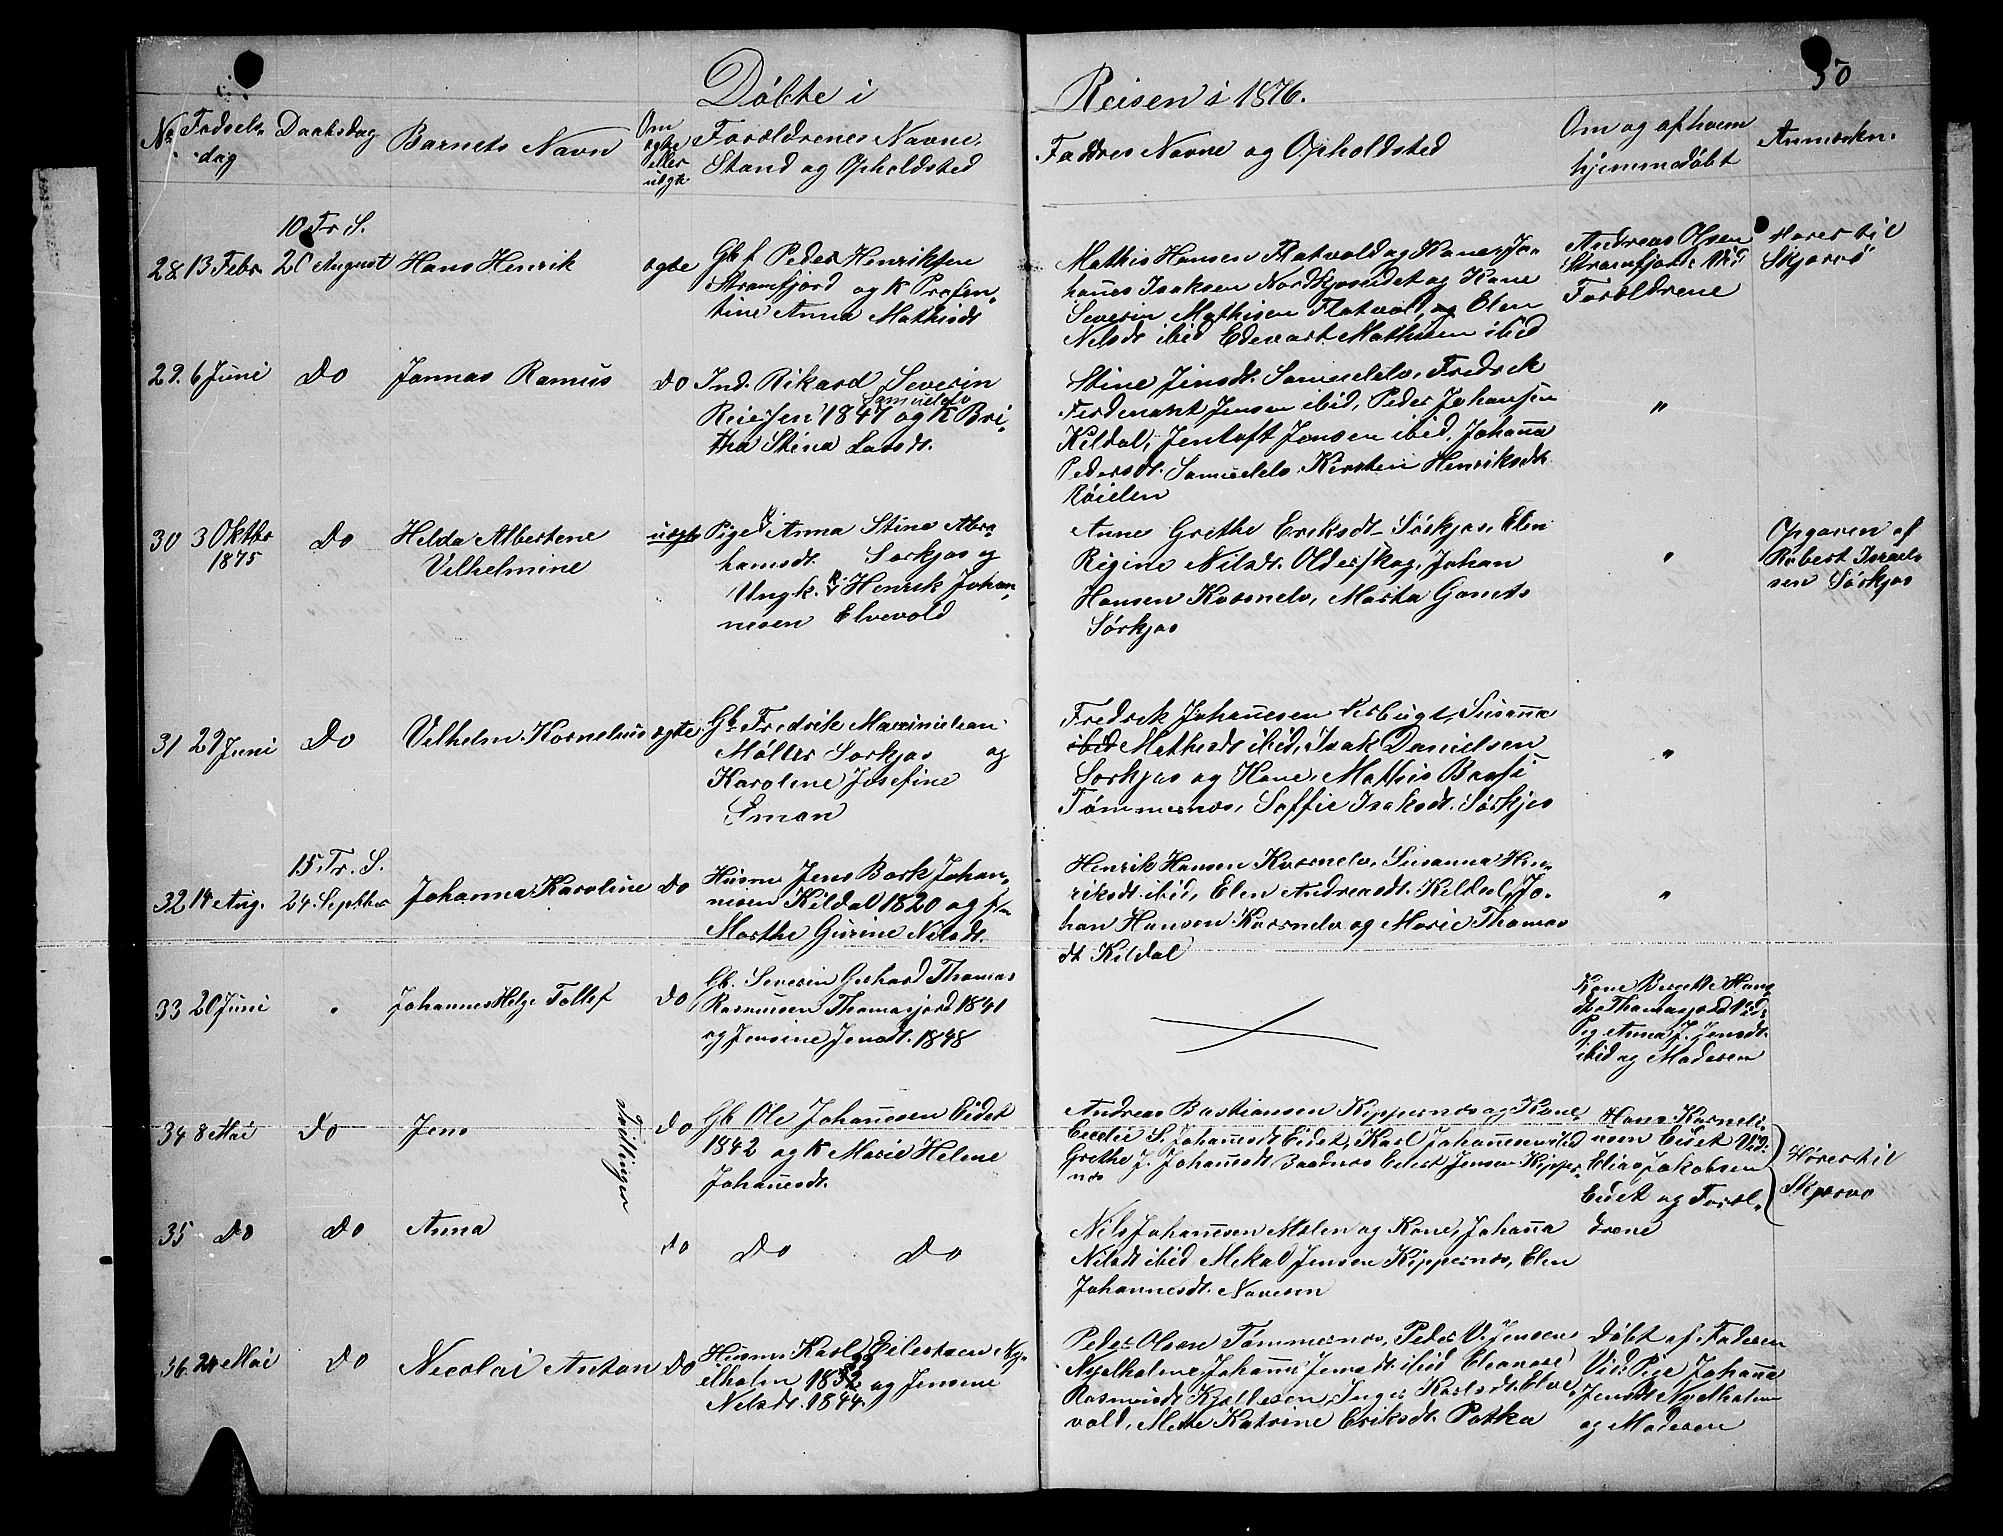 Døbte i Reisen i 1876.
50
No Fødsels dag
Daabsdag
Barnets Navn
Om ægte eller uægte
Forældrenes Navne, Stand og Opholdsted
Faddres Navne og Opholdsted
Om og af hvem hjemmedøbt
Anmærkn.
10 Tr S.
28 13 Febr. 20 August Hans Henrik ægte
Gbf Peder Henriksen
Straumfjord og K Profen-
tine Anna Mathisdt
Mathis Hansen Flatvold og Kone, Jo-
hanes Isaksen Nordkjoseidet og Kone
Severin Mathisen Flatvold, og Elen
Nilsdt ibid Edevart Mathisen ibid
Andreas Olsen
Straumfjord Vid:
Forældrene
Hører til
Skjærvø
29. 6 Juni Do Jonnas Ramus Do
Ind. Rikard Severin
Samuelelv
Reiersen 1847 og K Bri-
tha Stina Larsdt.
Stine Jensdt. Samuelelv, Fredrik
Ferdenant Jensen ibid, Peder Johansen
Kildal, Jentoft Jensen ibid, Johana
Pedersdt. Samuelelv Kirsten Henriksdt
Røielen
"
30 3 Oktbr 1875 Do Helda Albertene
Vilhelmine
uægte
Pige Anna Stina Abra-
hamsdt. Sørkjos og
Ungk. Henrik Johan-
nesen Elvevold
Anne Grethe Eriksdt Sørkjos, Elen
Regine Nilsdt. Olderskog, Johan
Hansen Kværnelv, Marta
Sørkjos
"
Opgaven af
Robert Israel-
sen Sørkjos
31 29 Juni Do Vilhelm Kornelius ægte
Gb Fredrik Maximilian
Møller Sørkjos og
Karoline Josefine
Eman
Fredrik Johanesen Verbugt, Susana
ibid Mathisdt ibid, Isak Danielsen
Sørkjos og Kone, Mathis Banfi
Tømmernes, Soffie Isaksdt. Sørkjos
"
15. Tr. S.
32 14 Aug. 24. Septbr Johanna Karoline Do
Husm Jens Bark Johan-
nesen Kildal 1820 og
Marthe Gurine Nilsdt.
Henrik Hansen Kværnelv, Susanna Hen-
riksdt ibid, Elen Andreasdt. Kildal, Jo-
han Hansen Kværnelv og Marie Thomas
dt Kildal
"
33 20 Juni " Johannes Helge Tollef Do
Gb. Severin Gerhard Thomas
Rasmusen Thomasjord 1841
og Jensine Jensdt. 1848
Kone Begethe Hans
dt. Thomasjord Vid:
Pig Anna J. Jensdt.
ibid og Moderen
34 8 Mai Do Jens Do
Tvillinger
Gb Ole Johanesen Eidet
1842 og K Marie Helene
Johanesdt.
Andreas Bastiansen Kippernes og Kone,
Cecelie S. Johanesdt Eidet, Karl Johanesen ibid
Grethe J. Johanesdt Eidet Jensen Kipper-
nes
Hans Korneli-
usen Eidet Vid:
Elias Jakobsen
Eidet og Foræl-
drene
Hører til
Skjærvø
35 Do Do Anna Do
Do Do
Nils Johanesen Molen og Kone, Johana
Nilsdt ibid Mekal Jensen Kippernes, Elen
Johannesdt. Navesen
36. 24 Mai Do Nicolai Anton Do
Husm. Karl Eilertsen Ny-
elholm 1832 og Jensine
Nilsdt. 1844.
Peder Olsen Tømmernes, Peder V. Jensen
Nyelholm, Johane Jensdt. ibid Eleanore
Rasmusdt Kjellesen, Inger Karlsdt. Elve-
vold, Mette Katrine Eriksdt. Potka
Døbt af Faderen
Vid: Pige Johana
Jensdt Nyelholm
og Moderen